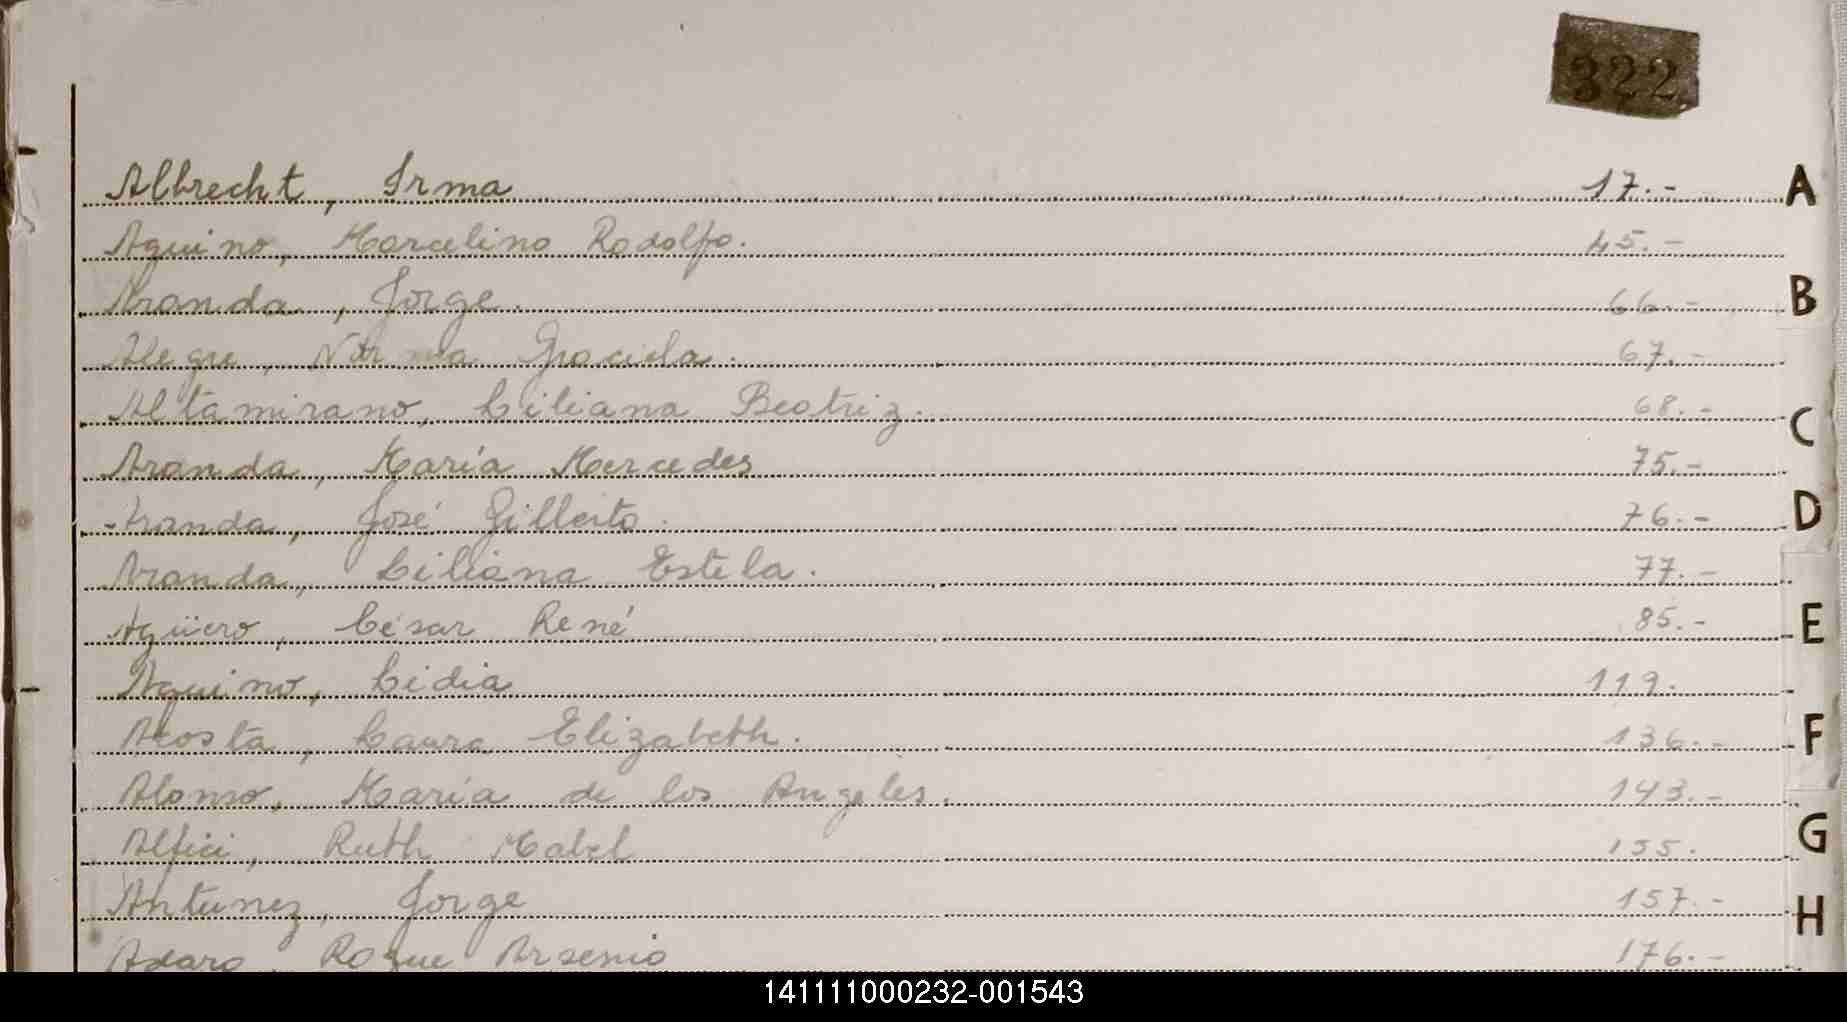 322
Albrecht, Irma 17.- A
Aquino, Marcelino Rodolfo. 45.-
Aranda, Jorge. 66.- B
Alegre, Norma Graciela. 67.-
Altamirano, Liliana Beatriz. 68.- C
Aranda, María Mercedes 75.-
Aranda, José Gilberto. 76.- D
Aranda, Liliana Estela. 77.-
Agüero, César René 85.- E
Aquino, Lidia 119.
Acosta, Laura Elizabeth. 136.- F
Alonso, María de los Angeles. 143.-
Ruth Mabel 155. G
Antunez, Jorge 157.- H
Adaro, Roque Arsenio 176.-
141111000232-001543